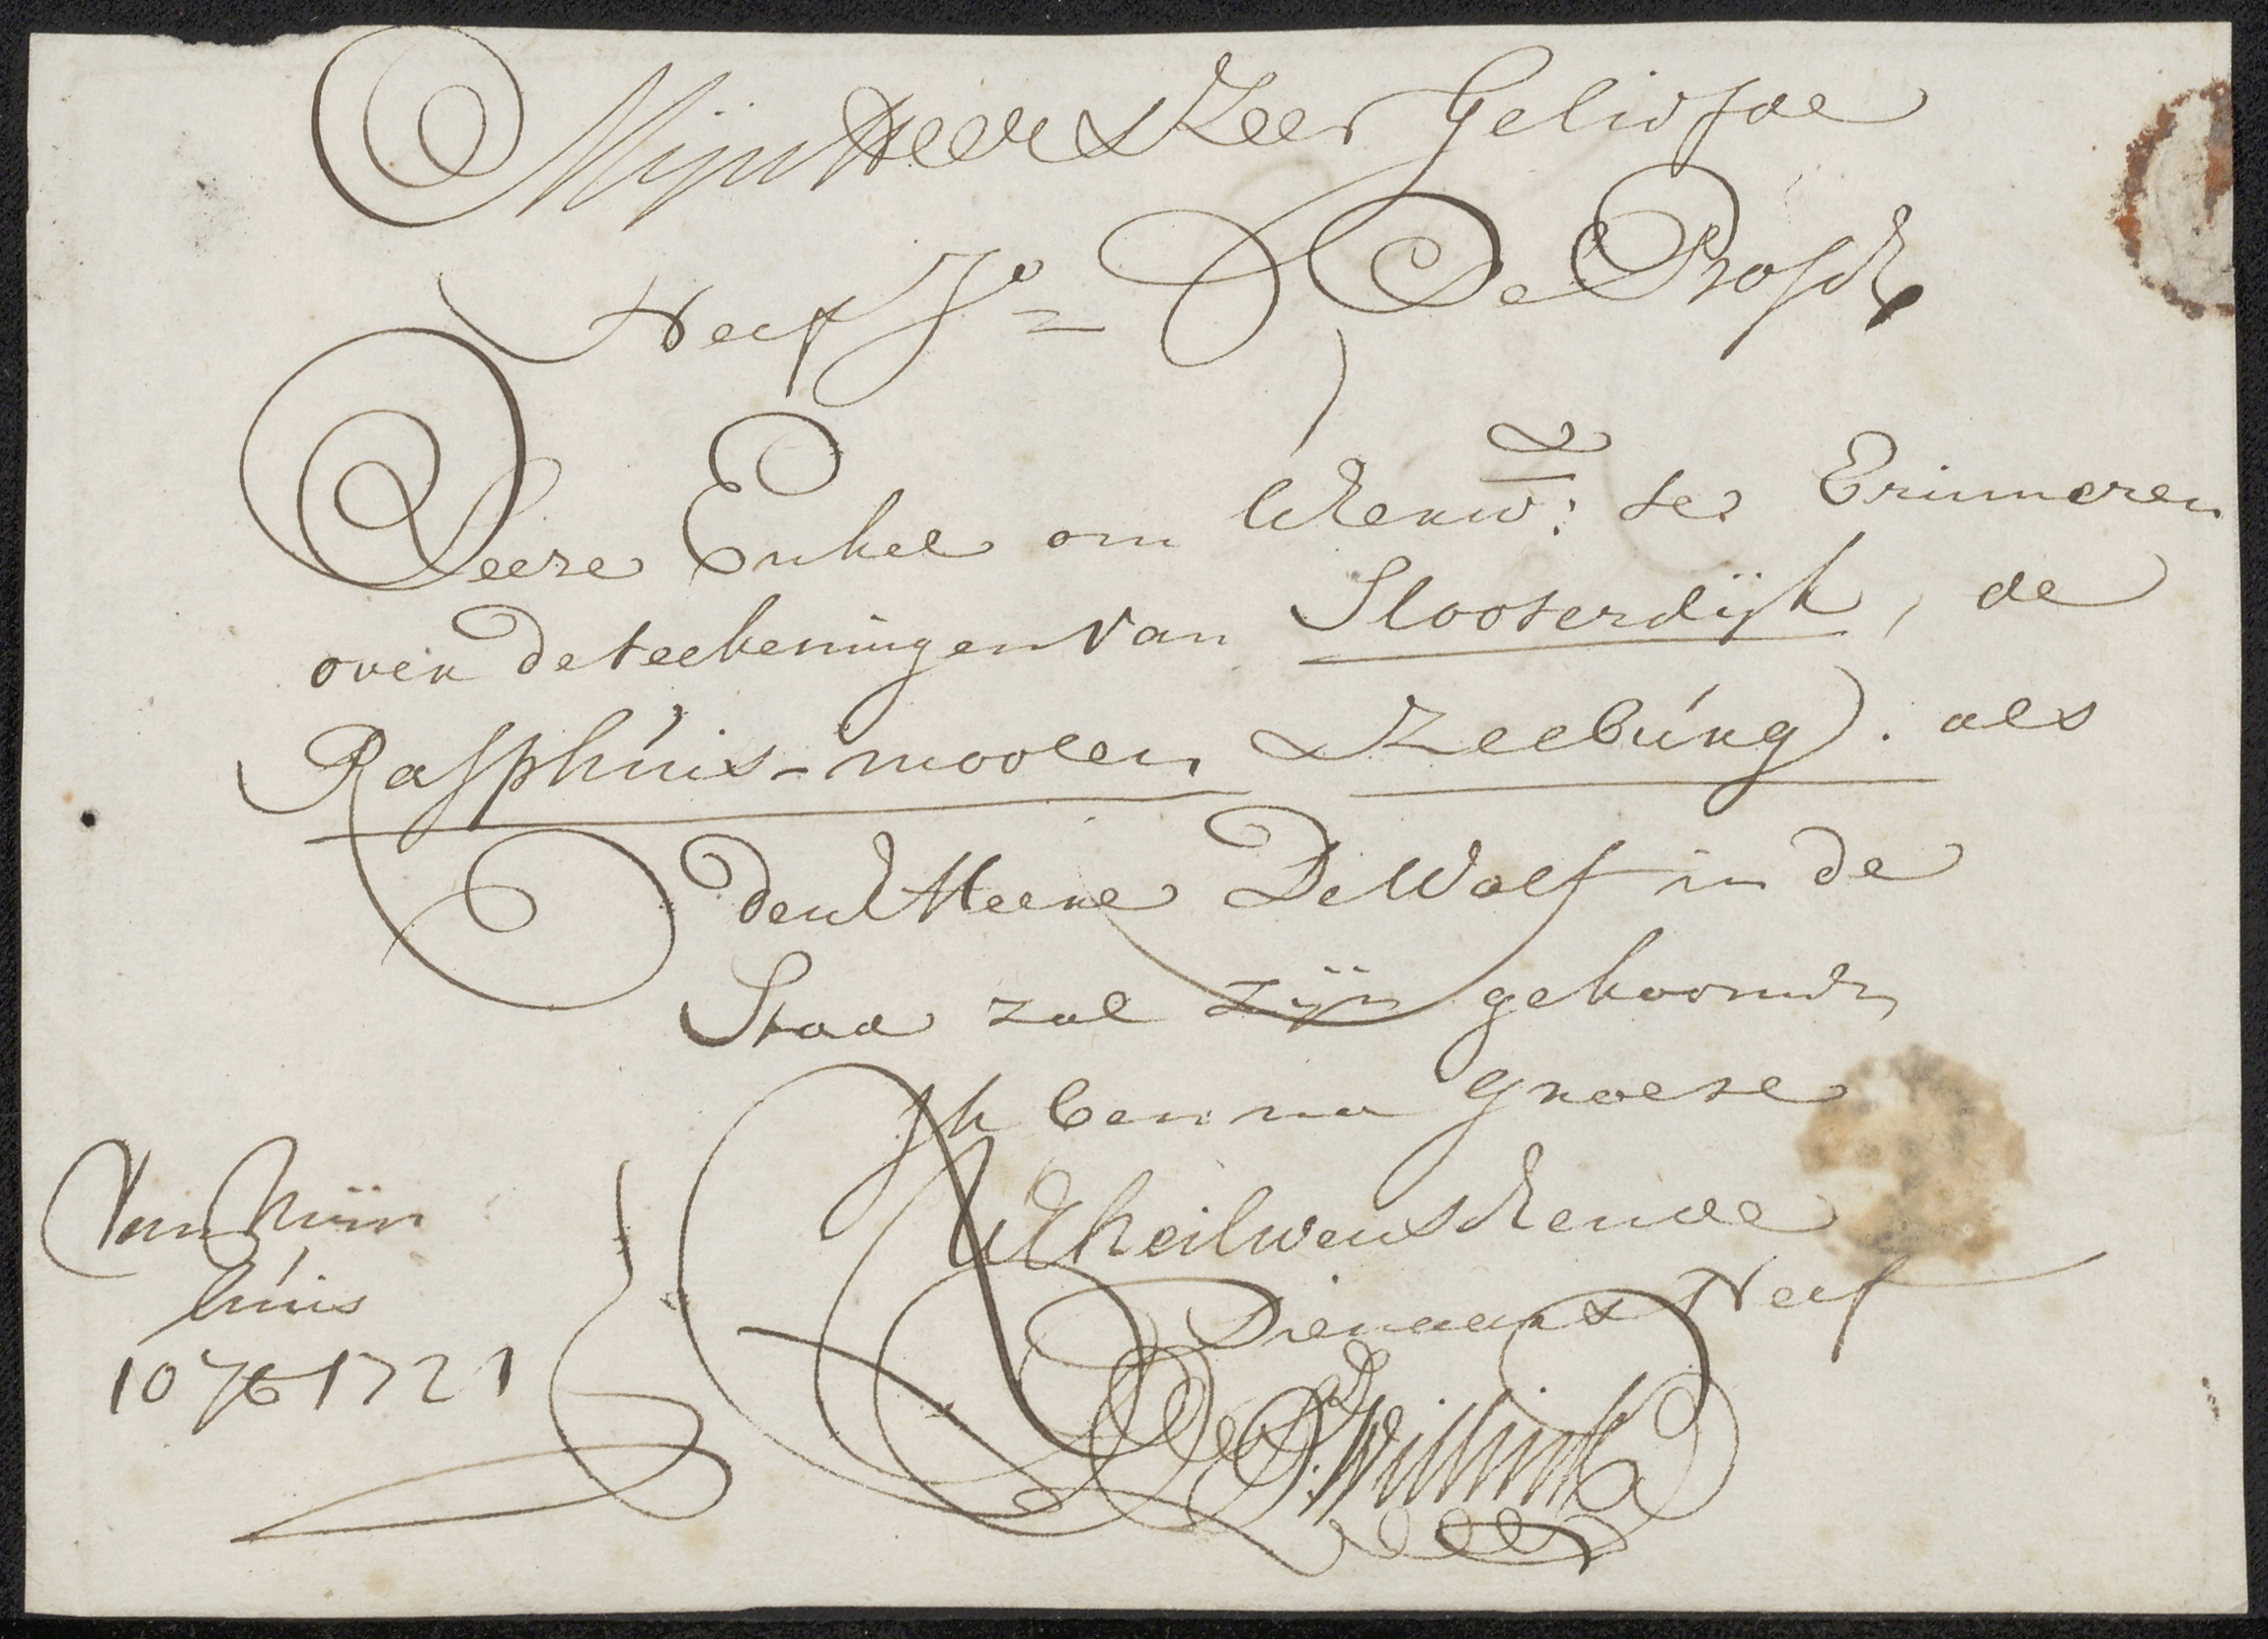 Mijn Heer & Zeer Geliefde
Neef Jo= De Bosch
Deese Enkel om UEerw: te Erinneren
over de teekeningen van Slooterdijk, de
Rasphúis-moolen & Zeebúrg). als
den Heere De Wolf in de
Stad zal zijn gekoomen
Ik ben na groete
UE heilwenschende
Dienaar & Neef
D: Willink
Van Mijn
húis
10 7b 1721